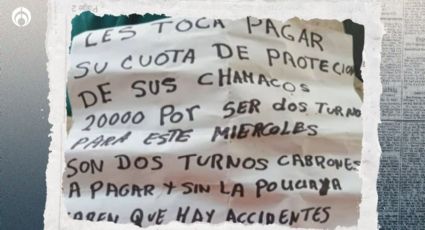 LES TOCA PAGAR
SU CUOTA DE PROTECION
DE SUS CHAMACOS
20000 POR SER DOS TURNO
PARA ESTE MIERCOLES
SON DOS TURNOS CABRONES
A PAGAR Y SIN LA POLICIA YA
QUE HAY ACCIDENTES